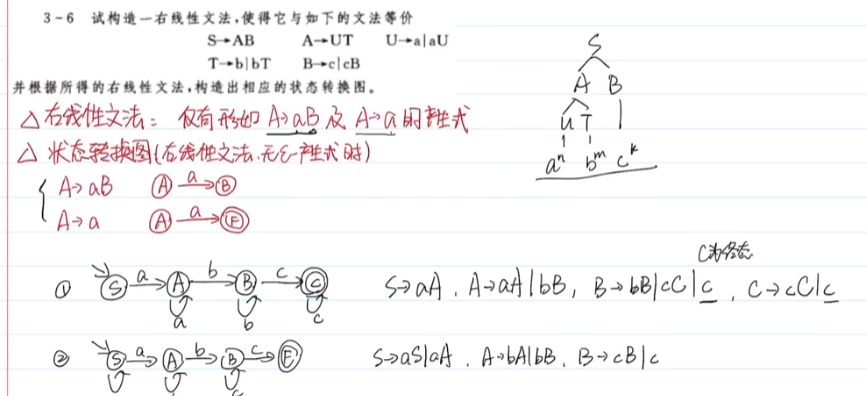 3-6 试构造一右线性文法,使得它与如下的文法等价
S→AB A→UT U→a|aU
T→b|bT B→c|cB
并根据所得的右线性文法,构造出相应的状态转换图。
△右线性文法: 仅有形如 A→aB 及 A→a 的产生式
△状态转换图(右线性文法.无ε产生式时)
A→aB A a B
A→a A a F
S
A B
U T
aⁿ bᵐ cᵏ
C为终态
① S a A b B c C S→aA . A→aA|bB, B→bB|cC|c . C→cC|c
a b c
② S a A b B c F S→aS|aA . A→bA|bB . B→cB|c